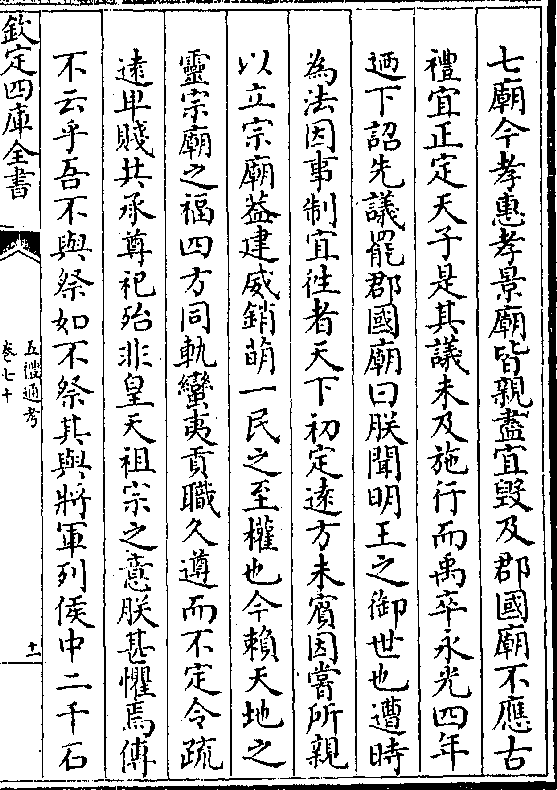 七廟今孝惠孝景廟皆親盡宜毀及郡國廟不應古
禮宜正定天子是其議未及施行而禹卒永光四年
迺下詔先議罷郡國廟曰朕聞明王之御世也遭時
為法因事制宜徃者天下初定逺方未賔因嘗所親
以立宗廟葢建威銷萌一民之至權也今賴天地之
靈宗廟之福四方同軌蠻夷貢職久遵而不定令疏
逺卑賤共承尊祀殆非皇天祖宗之意朕甚懼焉傳
不云乎吾不與祭如不祭其與將軍列侯中二千石
欽定四庫全書
五禮通考
卷七十
十一